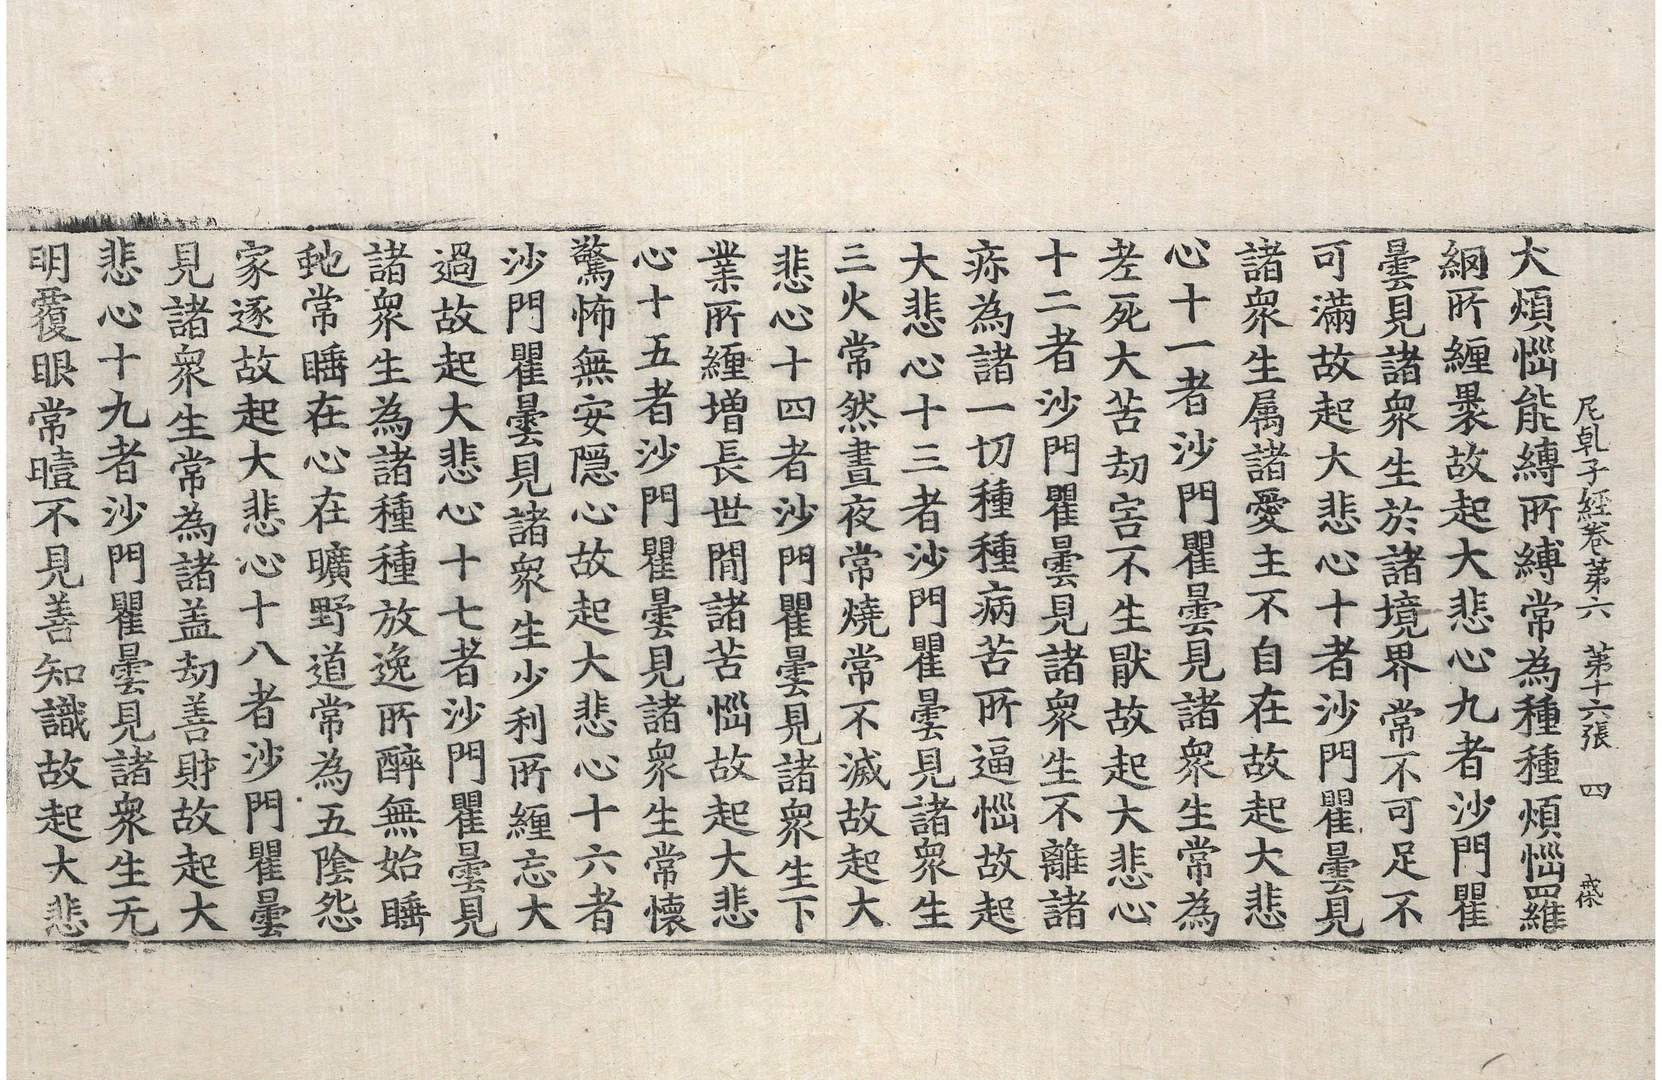 尼乹子經卷苐六 苐十六張 四
大煩惱能縛所縛常為種種煩惱羅
網所纏褁故起大悲心九者沙門瞿
曇見諸衆生於諸境界常不可足不
可滿故起大悲心十者沙門瞿曇見
諸衆生属諸愛主不自在故起大悲
心十一者沙門瞿曇見諸衆生常為
老死大苦劫害不生猒故起大悲心
十二者沙門瞿曇見諸衆生不離諸
病為諸一切種種病苦所逼惱故起
大悲心十三者沙門瞿曇見諸衆生
三火常然晝夜常燒常不滅故起大
悲心十四者沙門瞿曇見諸衆生下
業所纏增長世間諸苦惱故起大悲
心十五者沙門瞿曇見諸衆生常懷
驚怖無安隱心故起大悲心十六者
沙門瞿曇見諸衆生少利所纏忘大
過故起大悲心十七者沙門瞿曇見
諸衆生為諸種種放逸所醉無始睡
虵常睡在心在曠野道常為五陰怨
家逐故起大悲心十八者沙門瞿曇
見諸衆生常為諸盖劫善財故起大
悲心十九者沙門瞿曇見諸衆生无
明覆眼常曀不見善知識故起大悲